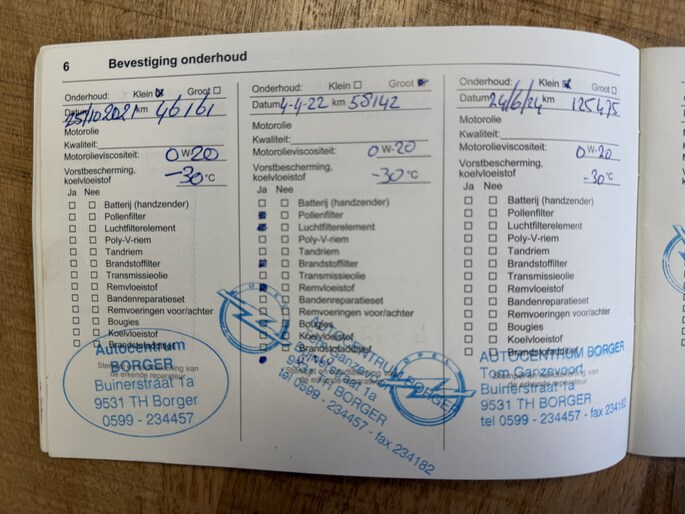 6 Bevestiging onderhoud
Onderhoud: Klein Groot
Datum 25/10 2021 km 46161
Motorolie
Kwaliteit:
Motorolieviscositeit: 0 W-20
Vorstbescherming,
koelvloeistof -30 °C
Ja Nee
Batterij (handzender)
Pollenfilter
Luchtfilterelement
Poly-V-riem
Tandriem
Brandstoffilter
Transmissieolie
Remvloeistof
Bandenreparatieset
Remvoeringen voor/achter
Bougies
Koelvloeistof
Brandstofadditief
Autocentrum
BORGER
de erkende reparateur
Buinerstraat 1a
9531 TH Borger
0599 - 234457
Onderhoud: Klein Groot
Datum 4-4-22 km 58142
Motorolie
Kwaliteit:
Motorolieviscositeit: 0 W-20
Vorstbescherming,
koelvloeistof -30 °C
Ja Nee
Batterij (handzender)
Pollenfilter
Luchtfilterelement
Poly-V-riem
Tandriem
Brandstoffilter
Transmissieolie
Remvloeistof
Bandenreparatieset
Remvoeringen voor/achter
Bougies
Koelvloeistof
Brandstofadditief
OPEL
AUTOCENTRUM BORGER
Ganzevoort
1a
BORGER
tel 0599 - 234457 - fax 234182
OPEL
Onderhoud: Klein Groot
Datum 24/6/24 km 125475
Motorolie
Kwaliteit:
Motorolieviscositeit: 0 W-20
Vorstbescherming,
koelvloeistof -30 °C
Ja Nee
Batterij (handzender)
Pollenfilter
Luchtfilterelement
Poly-V-riem
Tandriem
Brandstoffilter
Transmissieolie
Remvloeistof
Bandenreparatieset
Remvoeringen voor/achter
Bougies
Koelvloeistof
Brandstofadditief
AUTOCENTRUM BORGER
Tom Ganzevoort
Buinerstraat 1a
9531 TH BORGER
tel 0599 - 234457 - fax 234182